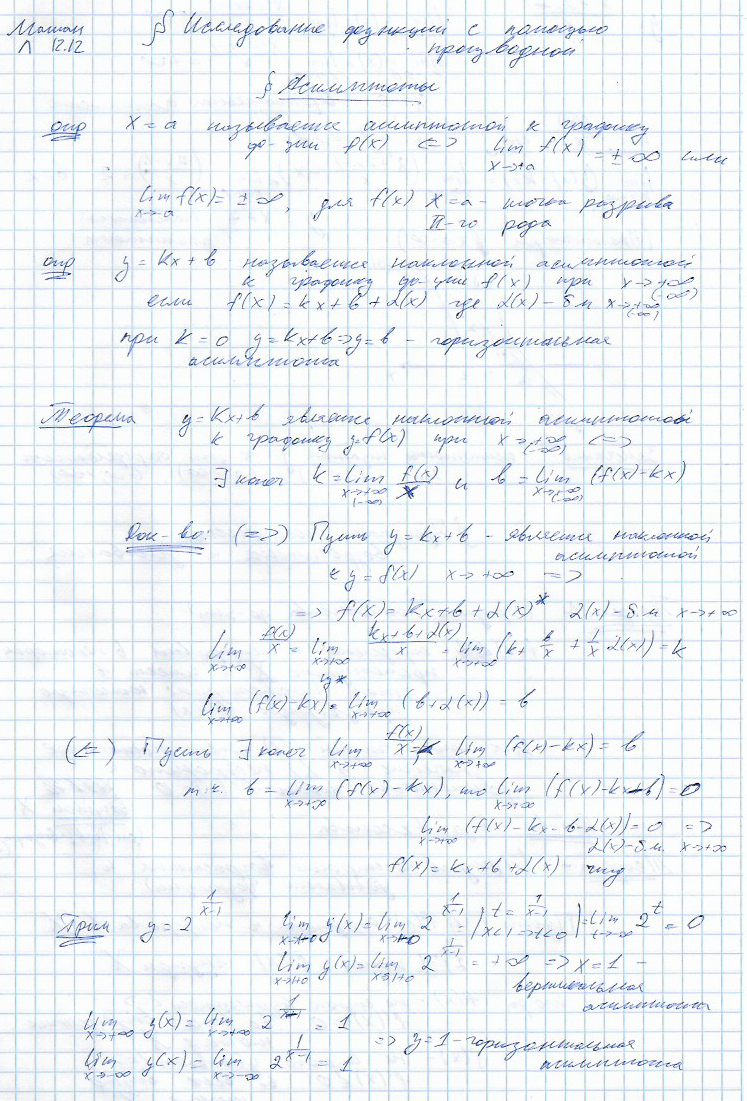 Матан §§ Исследование функций с помощью
Л 12.12 производной
§ Асимптоты
опр x = a называется асимптотой к графику
ф-ции f(x) <=> lim x→+a f(x) = ±∞ или
lim x→-a f(x) = ±∞, для f(x) x = a - точка разрыва
II-го рода
опр y = kx + b называется наклонной асимптотой
к графику ф-ции f(x) при x→+∞ (-∞)
если f(x) = kx + b + α(x) где α(x) - б.м x→+∞ (-∞)
при k = 0 y = kx+b => y = b - горизонтальная
асимптота
Теорема y = kx+b является наклонной асимптотой
к графику y=f(x) при x→+∞ (-∞) <=>
∃ конеч k = lim x→+∞ (-∞) f(x)/x и b = lim x→+∞ (-∞) (f(x)-kx)
Док-во: (=>) Пусть y = kx+b - является наклонной
асимптотой
к y = f(x) x→+∞ =>
=> f(x) = kx+b+α(x)* α(x) - б.м. x→+∞
lim x→+∞ f(x)/x = lim x→+∞ (kx+b+α(x))/x = lim x→+∞ (k + b/x + 1/x α(x)) = k
из *
lim x→+∞ (f(x)-kx) = lim x→+∞ (b+α(x)) = b
(<=) Пусть ∃ конеч lim x→+∞ f(x)/x = k lim x→+∞ (f(x)-kx) = b
т.к. b = lim x→+∞ (f(x)-kx), то lim x→+∞ (f(x)-kx-b) = 0
lim x→+∞ (f(x)-kx-b-α(x)) = 0 =>
α(x) - б.м. x→+∞
f(x) = kx+b+α(x) чтд
Прим y = 2^(1/(x-1)) lim x→1-0 y(x) = lim x→1-0 2^(1/(x-1)) = | t = 1/(x-1) x<1 => t<0 | = lim t→-∞ 2^t = 0
lim x→1+0 y(x) = lim x→1+0 2^(1/(x-1)) = +∞ => x = 1 -
вертикальная
асимптота
lim x→+∞ y(x) = lim x→+∞ 2^(1/(x-1)) = 1
=> y = 1 - горизонтальная
lim x→-∞ y(x) = lim x→-∞ 2^(1/(x-1)) = 1 асимптота